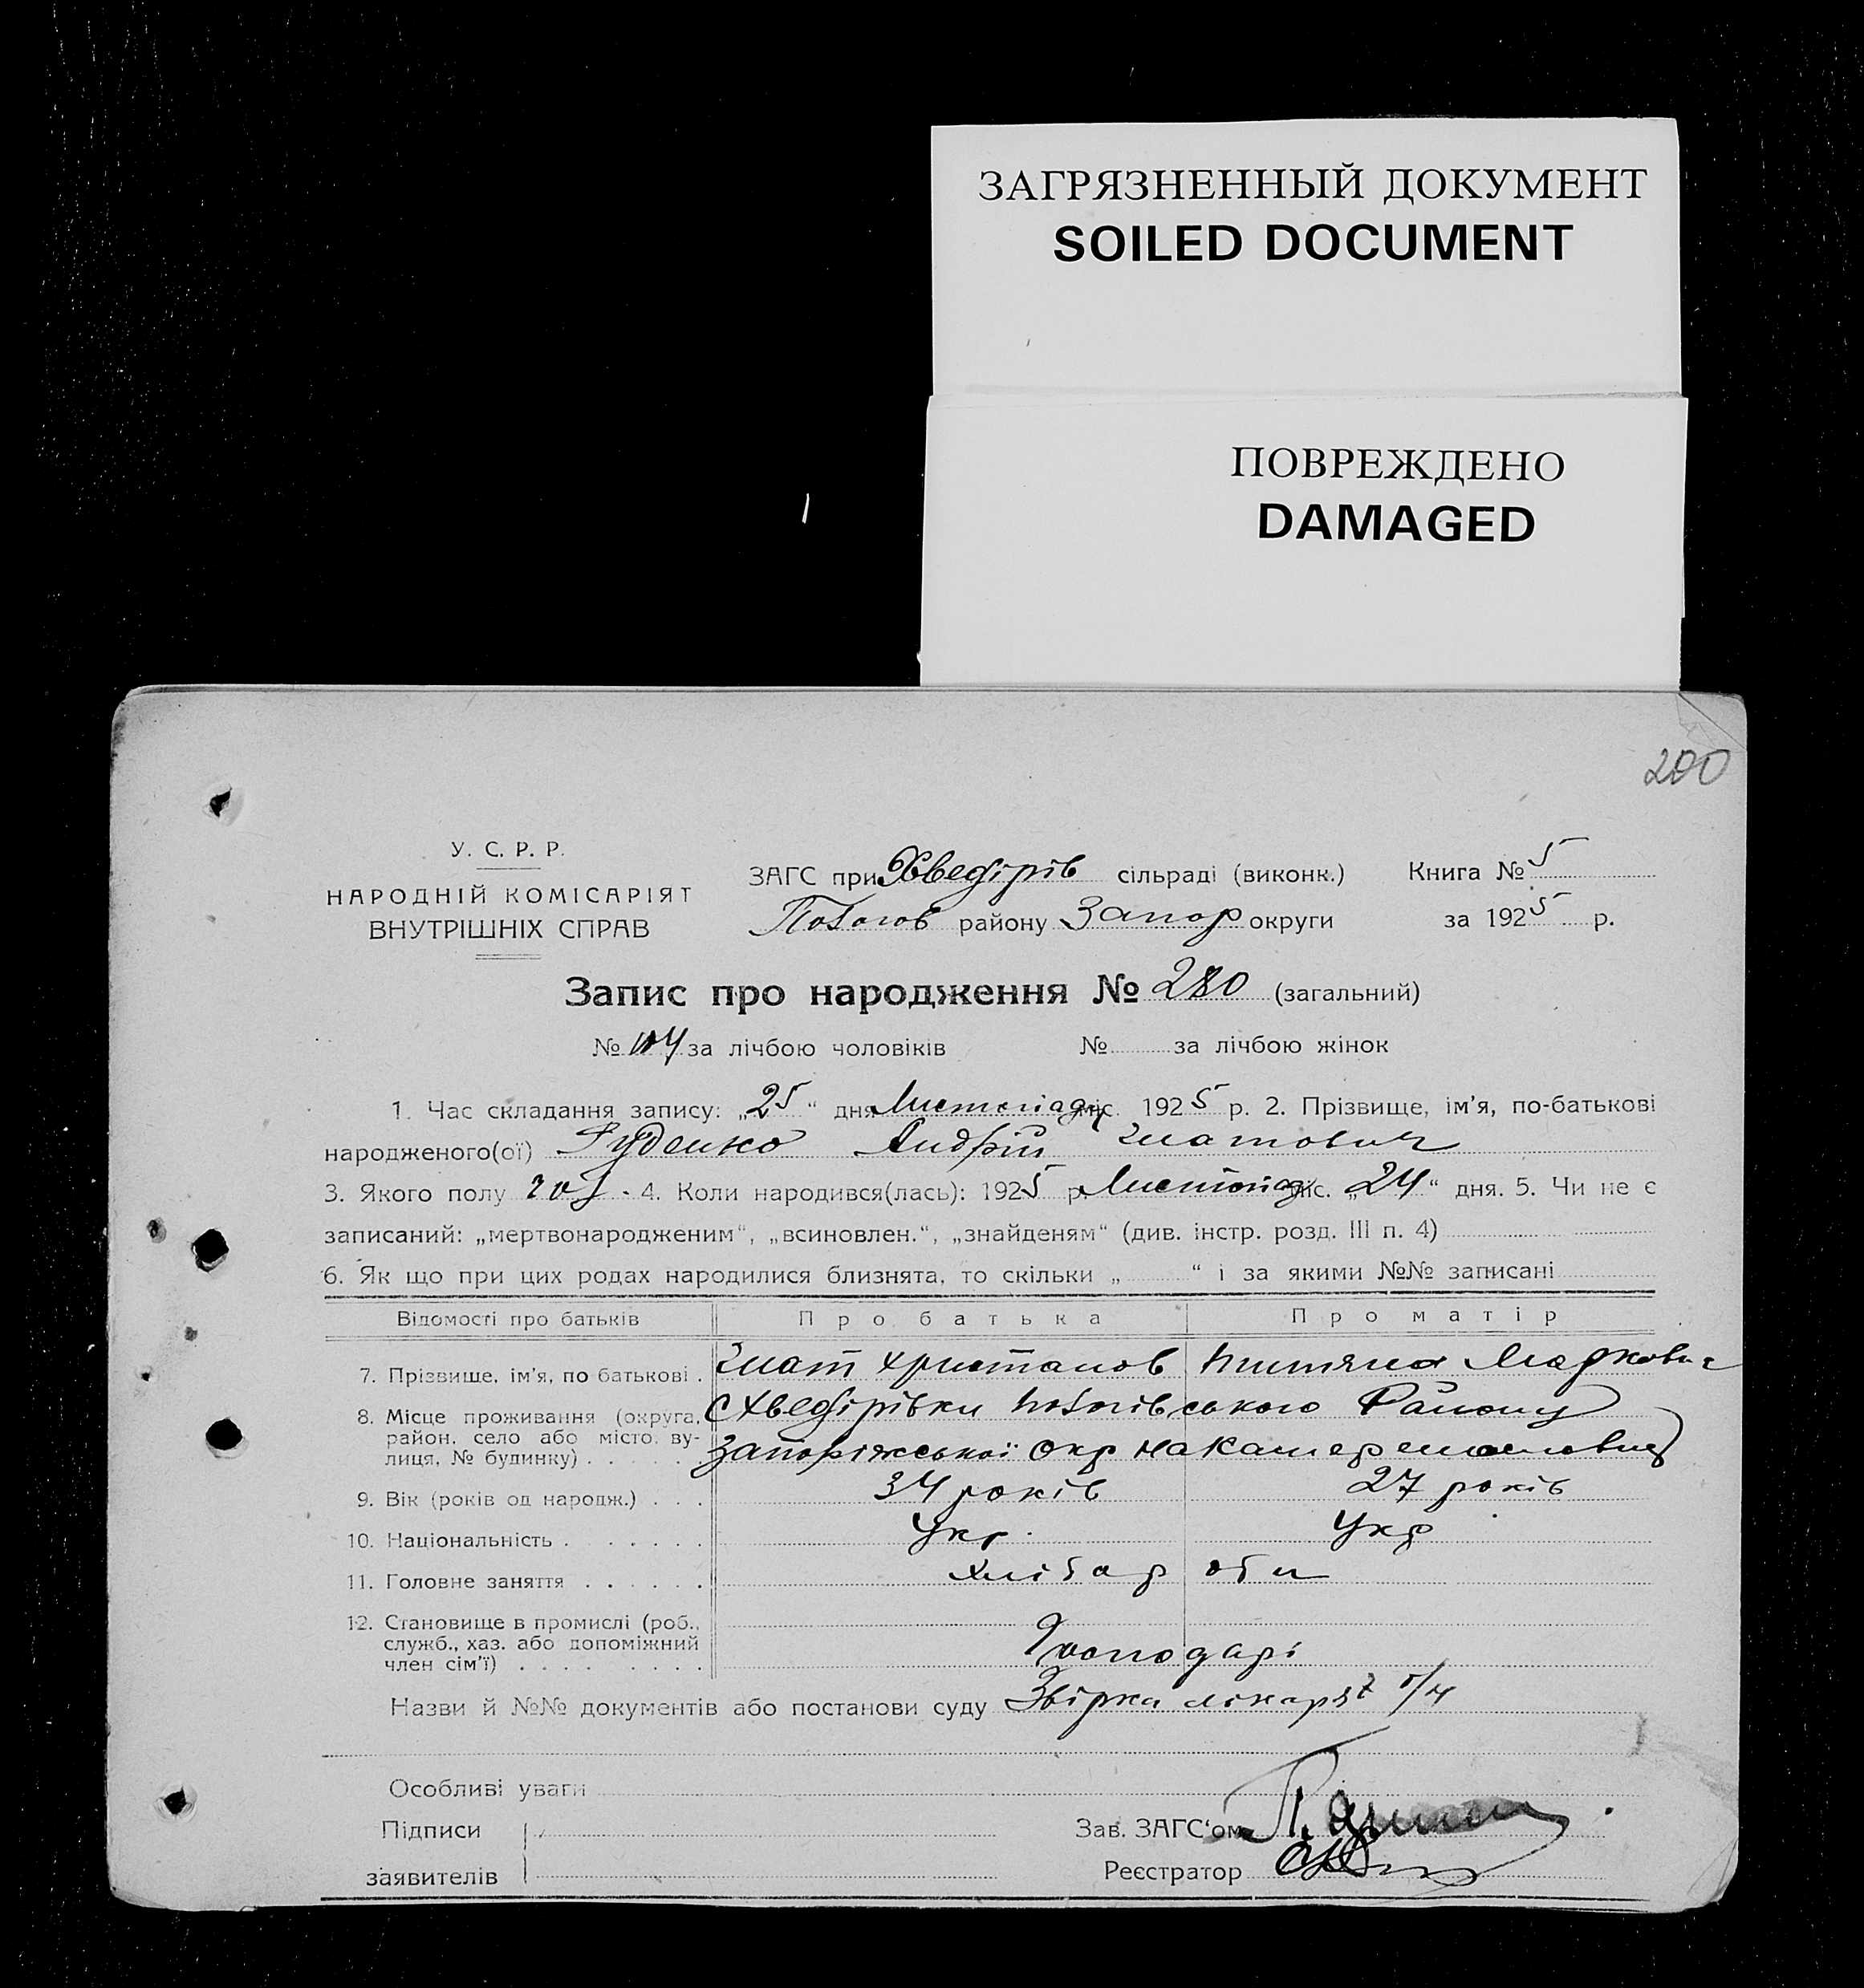 ЗАГРЯЗНЕННЫЙ ДОКУМЕНТ
SOILED DOCUMENT
ПОВРЕЖДЕНО
DAMAGED
200
У. С. Р. Р.
НАРОДНІЙ КОМІСАРІЯТ
ВНУТРІШНІХ СПРАВ
ЗАГС при Хведірів сільраді (виконк.) Книга № 5
Пологов району Запор округи за 1925 р.
Запис про народження № 280 (загальний)
№ за лічбою чоловіків № за лічбою жінок
1. Час складання запису: „25“ дня Листопаду міс. 1925 р. 2. Прізвище, ім'я, по-батькові
народженого(ої) Руденко Андрій Гнатович
3. Якого полу чол. 4. Коли народився(лась): 1925 р. Листопад міс. „24“ дня. 5. Чи не є
записаний: „мертвонародженим“, „всиновлен.“, „знайденям“ (див. інстр. розд. III п. 4)
6. Як що при цих родах народилися близнята, то скільки „ “ і за якими №№ записані
Відомості про батьків Про батька Про матір
7. Прізвище, ім'я, по батькові . Гнат Христанов Маркович
8. Місце проживання (округа, с Хведірівки Пологівського Району
район, село або місто, ву-
лиця, № будинку) . . . . . Запоріжської Окр
9. Вік (років од народж.) . . . 34 років 27 років
10. Національність . . . . . . Укр. Укр
11. Головне заняття . . . . . . хлібароби
12. Становище в промислі (роб.,
служб., хаз. або допоміжний
член сім'ї) . . . . . . . . . Господарі
Назви й №№ документів або постанови суду Звірка лікаря
Особливі уваги
Підписи
заявителів
Зав. ЗАГС'ом
Реєстратор